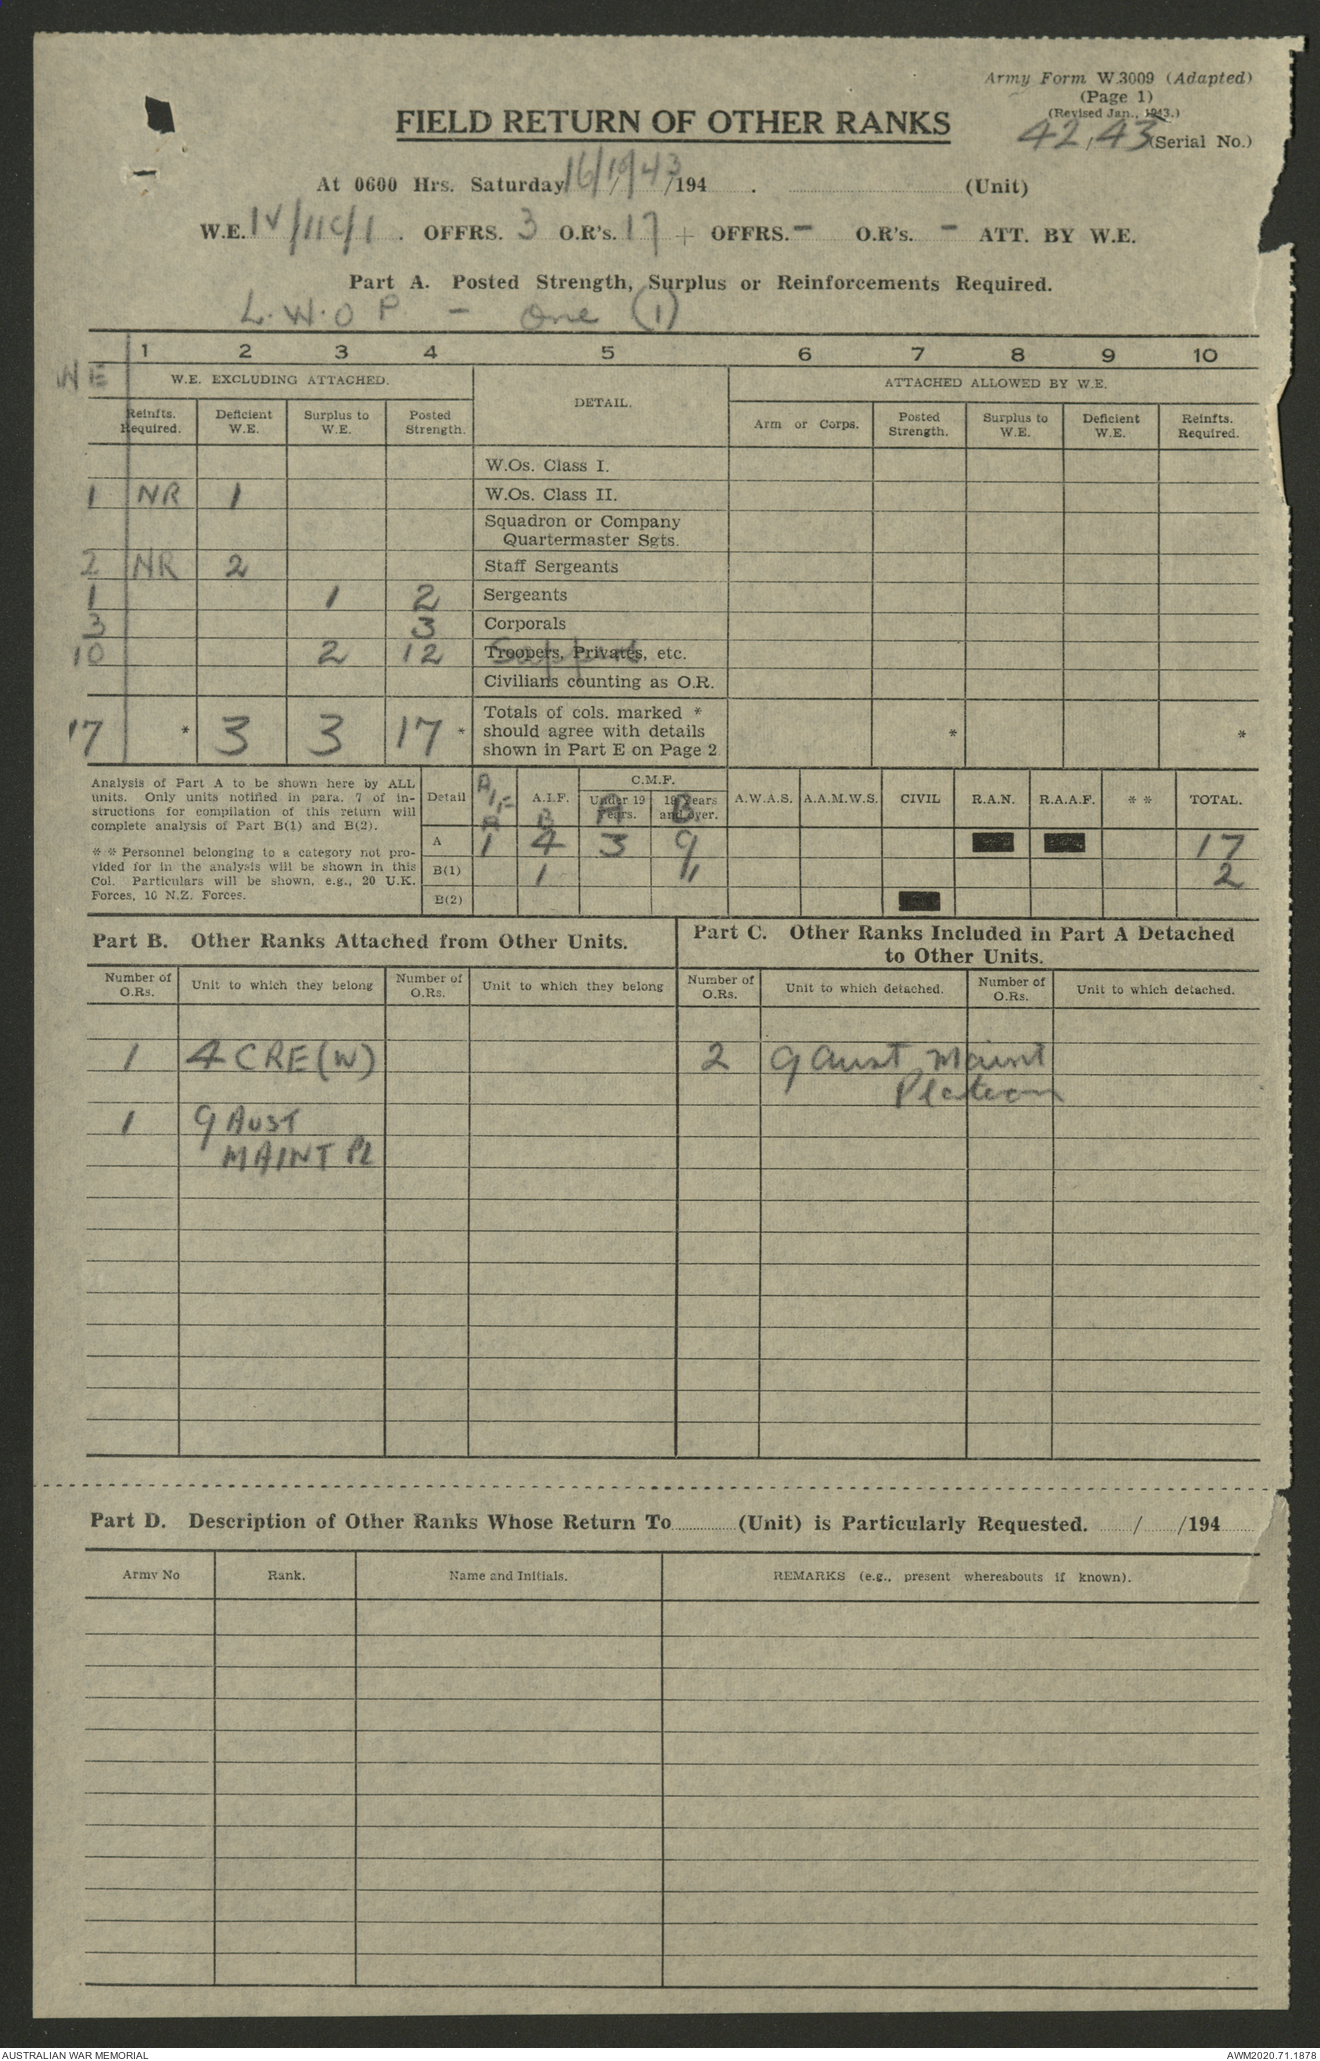 Army Form W.3009 (Adapted)
(Page 1)
(Revised Jan., 1943.)
42/43 (Serial No.)
FIELD RETURN OF OTHER RANKS
At 0600 Hrs. Saturday 16/10/43 /194 . (Unit)
W.E. IV/11C/1 . OFFRS. 3 O.R's. 17 + OFFRS. - O.R's. - ATT. BY W.E.
Part A. Posted Strength, Surplus or Reinforcements Required.
L.W.O.P. - One (1)
1 2 3 4 5 6 7 8 9 10
WE W.E. EXCLUDING ATTACHED. DETAIL. ATTACHED ALLOWED BY W.E.
Reinfts. Required. Deficient W.E. Surplus to W.E. Posted Strength. Arm or Corps. Posted Strength. Surplus to W.E. Deficient W.E. Reinfts. Required.
W.Os. Class I.
1 NR 1 W.Os. Class II.
Squadron or Company
Quartermaster Sgts.
2 NR 2 Staff Sergeants
1 1 2 Sergeants
3 3 Corporals
10 2 12 Troopers, Privates, etc.
Civilians counting as O.R.
17 * 3 3 17 * Totals of cols. marked * * *
should agree with details
shown in Part E on Page 2
Analysis of Part A to be shown here by ALL
units. Only units notified in para. 7 of in-
structions for compilation of this return will
complete analysis of Part B(1) and B(2).
* * Personnel belonging to a category not pro-
vided for in the analysis will be shown in this
Col. Particulars will be shown, e.g., 20 U.K.
Forces, 10 N.Z. Forces.
Detail A.I.F. C.M.F. A.W.A.S. A.A.M.W.S. CIVIL R.A.N. R.A.A.F. * * TOTAL.
Under 19 years. 19 years and over.
A B A B
A 1 4 3 9 17
B(1) 1 2
B(2)
Part B. Other Ranks Attached from Other Units.
Number of O.Rs. Unit to which they belong Number of O.Rs. Unit to which they belong
1 4 CRE (W)
1 9 AUST
MAINT Pl
Part C. Other Ranks Included in Part A Detached
to Other Units.
Number of O.Rs. Unit to which detached. Number of O.Rs. Unit to which detached.
2 9 Aust Maint
Platoon
Part D. Description of Other Ranks Whose Return To (Unit) is Particularly Requested. / /194
Army No Rank. Name and Initials. REMARKS (e.g., present whereabouts if known).
AUSTRALIAN WAR MEMORIAL AWM2020.71.1878